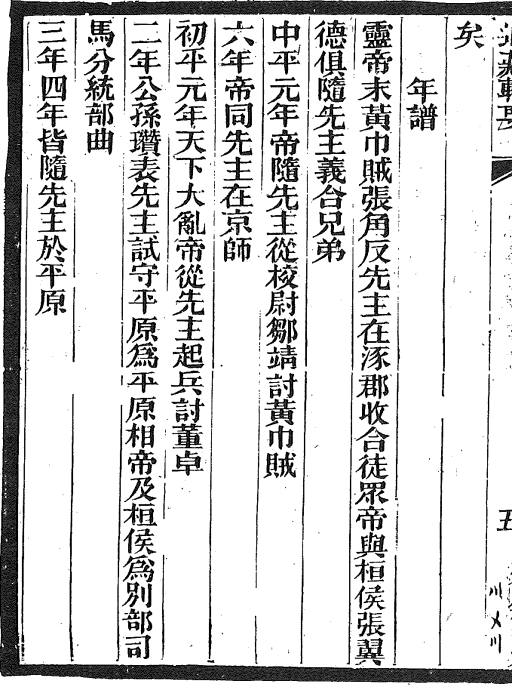 道藏輯要
五
矣
年譜
靈帝末黃巾賊張角反先主在涿郡收合徒眾帝與桓侯張翼
德俱隨先主義合兄弟
中平元年帝隨先主從校尉鄒靖討黃巾賊
六年帝同先主在京師
初平元年天下大亂帝從先主起兵討董卓
二年公孫瓚表先主試守平原為平原相帝及桓侯為別部司
馬分統部曲
三年四年皆隨先主於平原